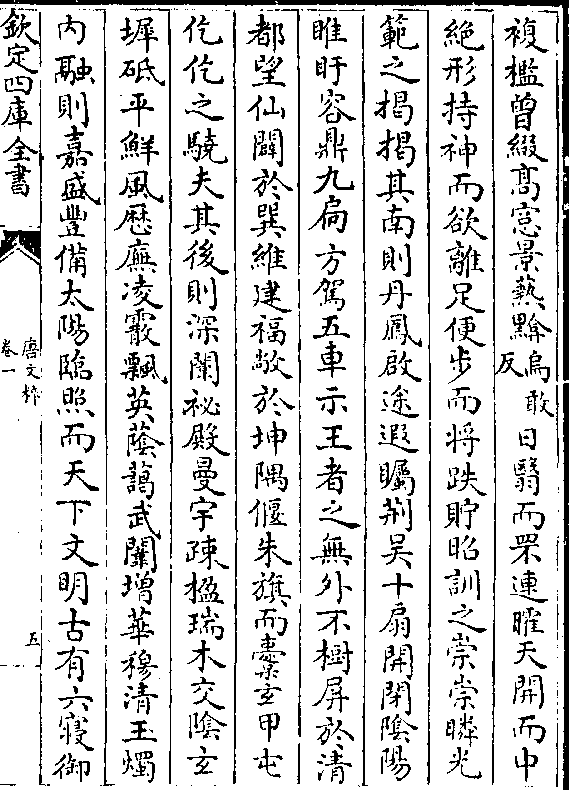 複檻曾綴髙窓景爇黭烏敢反日翳而罘連曜天開而中
絶形持神而欲離足便步而將跌貯昭訓之崇崇瞵光
範之揭揭其南則丹鳳啟途遐矚荆吴十扇開閉陰陽
睢盱容鼎九扄方駕五車示王者之無外不樹屏於清
都望仙闢於巽維建福敞於坤隅偃朱旗而櫜玄甲屯
仡仡之驍夫其後則深闈祕殿曼宇疎楹瑞木交陰玄
墀砥平鮮風歴廡凌霰飄英蔭藹武闈增華穆清玉燭
内融則嘉盛豐備太陽臨照而天下文明古有六寢御
欽定四庫全書
唐文粹
卷一
五